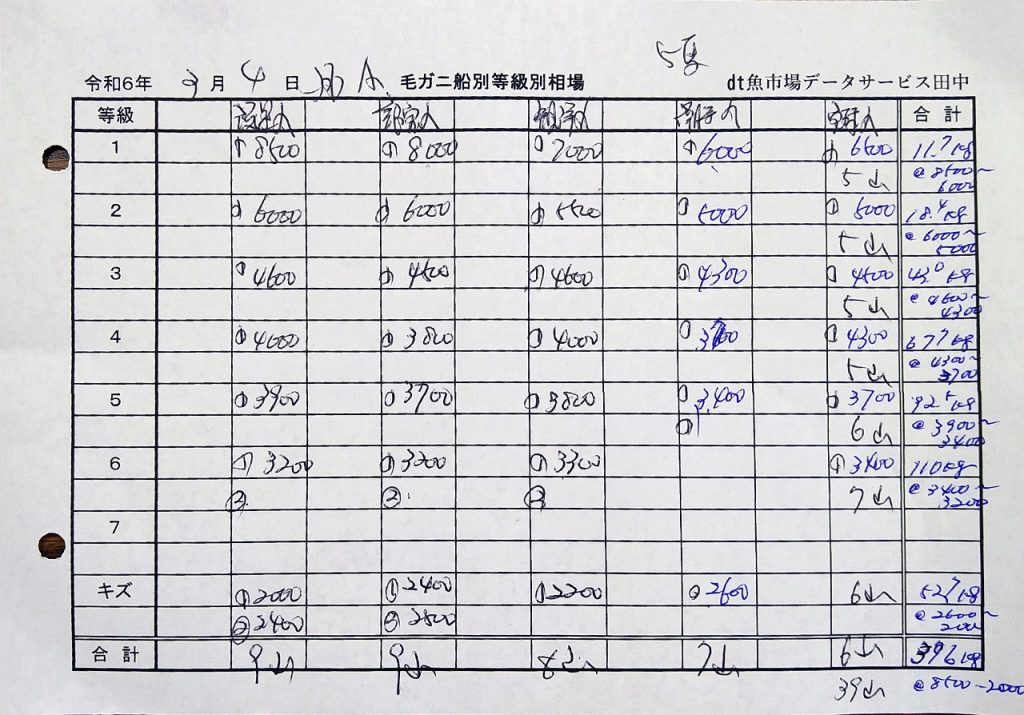 5隻
令和6年 3月4日 毛ガニ船別等級別相場 dt魚市場データサービス田中
等級 合計
1 ① 8500 ① 8000 ① 7000 ① 6000 ① 6500 11.7kg
5山 @8500~6000
2 ① 6000 ① 6000 ① 5500 ① 5000 ① 5000 18.4kg
5山 @6000~5000
3 ① 4600 ① 4500 ① 4600 ① 4300 ① 4500 43.0kg
5山 @4600~4300
4 ① 4000 ① 3800 ① 4000 ① 3700 ① 4300 67.7kg
5山 @4300~3700
5 ① 3900 ① 3700 ① 3800 ① 3400 ① 3700 92.5kg
① 6山 @3900~3400
6 ① 3200 ① 3200 ① 3300 ① 3400 110kg
② ② ② 7山 @3400~3200
7
キズ ① 2000 ① 2400 ① 2200 ② 2600 6山 52.7kg
② 2400 ② 2500 @2600~2000
合計 9山 9山 8山 7山 6山 396kg
39山 @8500~2000